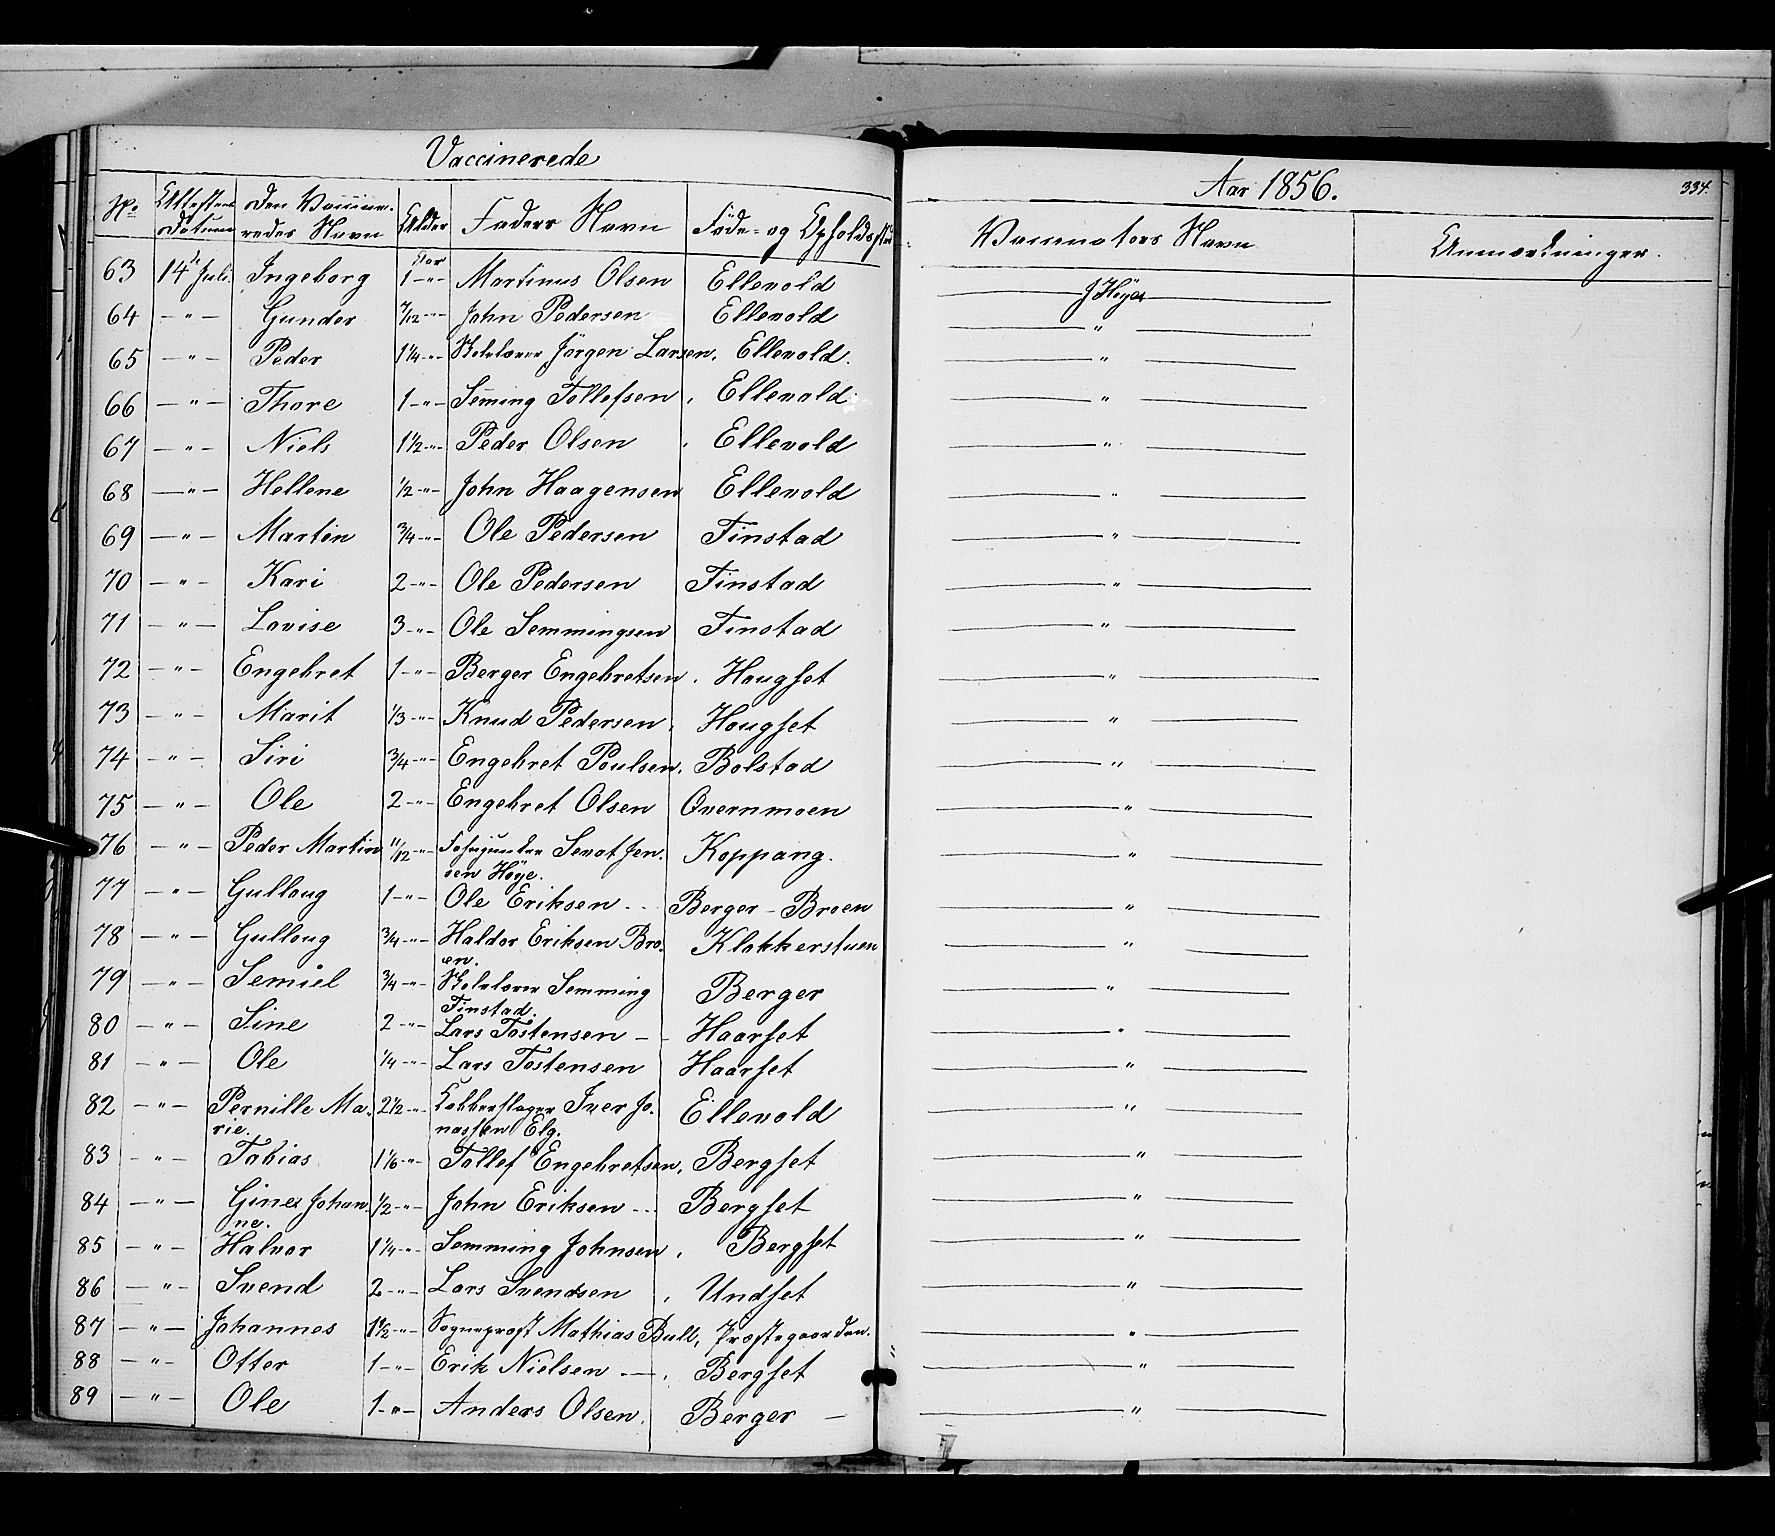 Vaccinerede
Aar 1856.
334.
No Attestens Datum den Vaccineredes Navn Alder Faders Navn Føde- og Opholdssted Vaccinators Navn Anmærkninger.
63 14de Juli. Ingeborg Aar 1 -"- Martinus Olsen Ellevold J Høye
64 -"- Gunder 7/12 -"- John Pedersen Ellevold "
65 -"- Peder 1 1/4 -"- Skolelærer Jörgen Larsen. Ellevold. "
66 -"- Thore 1 -"- Seming Tollefsen. Ellevold. "
67 -"- Niels 1 1/2 -"- Peder Olsen Ellevold "
68 -"- Hellene 1/2 -"- John Haagensen Ellevold "
69 -"- Martin 3/4 -"- Ole Pedersen Finstad "
70 -"- Kari 2 -"- Ole Pedersen Finstad "
71 -"- Lovise 3 -"- Ole Semmingsen Finstad "
72 -"- Engebret 1 -"- Berger Engebretsen. Haugset "
73 -"- Marit 1/3 -"- Knud Pedersen. Hougset "
74 -"- Siri 3/4 -"- Engebret Poulsen. Bolstad "
75 -"- Ole 2 -"- Engebret Olsen Overnmoen "
76 -"- Peder Martin 11/12 -"- Sevat Jen-
sen Höye. Koppang. "
77 -"- Gulloug 1 -"- Ole Eriksen Berger-Broen "
78 -"- Gulloug 3/4 -"- Haldor Eriksen Bro-
en. Klokkerstuen "
79 -"- Semiel 3/4 -"- Skolelærer Semming
Finstad. Berger "
80 -"- Sine 2 -"- Lars Tostensen Haarset "
81 -"- Ole 1/4 -"- Lars Tostensen Haarset "
82 -"- Pernille Ma-
rie. 2 1/2 -"- Kobberslager Iver Jo-
nassen Elg. Ellevold "
83 -"- Tobias 1 1/6 -"- Tollef Engebretsen. Bergset "
84 -"- Gine Johan-
ne. 1/2 -"- John Eriksen Bergset "
85 -"- Halvor 1 1/4 -"- Semming Johnsen. Bergset "
86 -"- Svend 2 -"- Lars Svendsen. Undset "
87 -"- Johannes 1 1/2 -"- Sogneprest Mathias Bull, Præstegaarden. "
88 -"- Otter 1 -"- Erik Nielsen Bergset "
89 -"- Ole 1 -"- Anders Olsen. Berger "